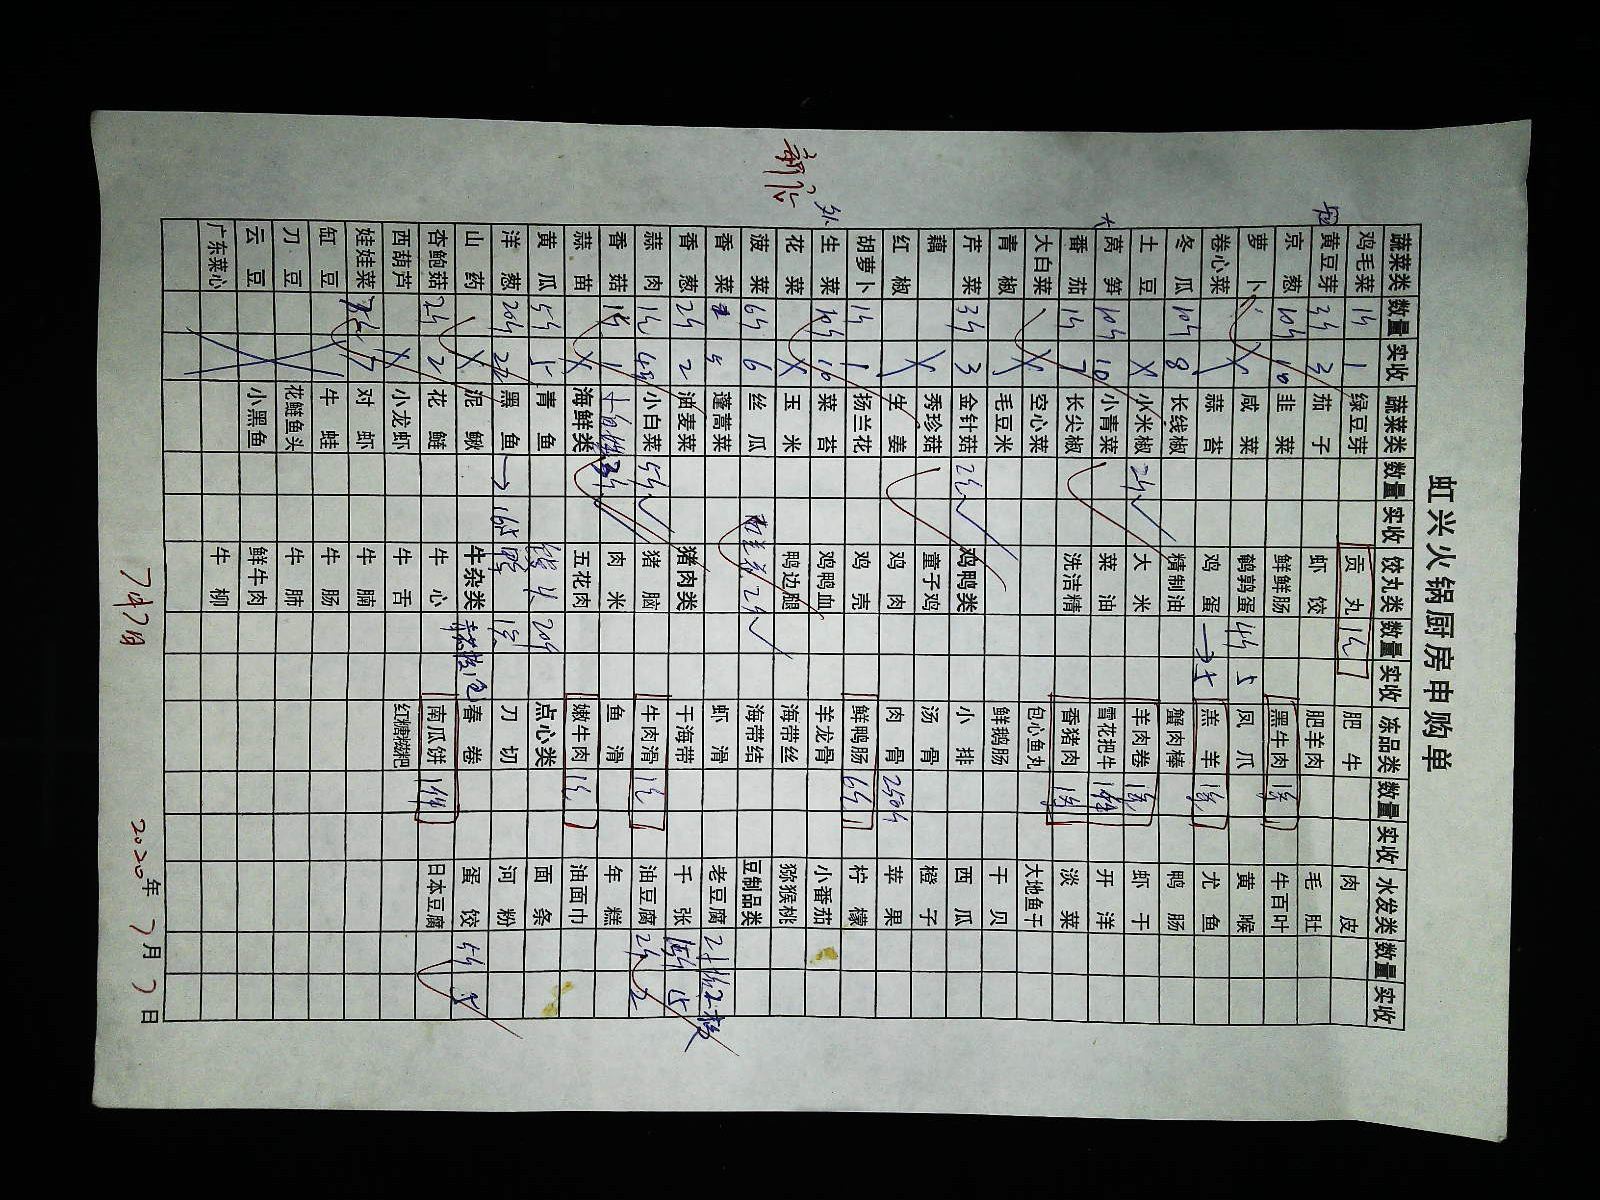 虹兴火锅厨房申购单
蔬菜类 数量 实收 蔬菜类 数量 实收 饺丸类 数量 实收 冻品类 数量 实收 水发类 数量 实收
鸡毛菜 1斤 1 绿豆芽 贡丸 1包 肥牛 肉皮
黄豆芽 3斤 3 茄子 虾饺 肥羊肉 毛肚
京葱 10斤 10 韭菜 鲜鲜肠 黑牛肉 1条 牛百叶
萝卜 咸菜 鹌鹑蛋 4斤 5 凤爪 黄喉
卷心菜 X 蒜苔 鸡蛋 羔羊 1条 尤鱼
冬瓜 10斤 8 长线椒 精制油 蟹肉棒 鸭肠
土豆 X 小米椒 2斤 大米 羊肉卷 1条 虾干
大 莴笋 10斤 10 小青菜 菜油 雪花把牛 1件 开洋
番茄 1斤 7 长尖椒 洗洁精 香猪肉 1条 淡菜
大白菜 X 空心菜 包心鱼丸 大地鱼干
青椒 毛豆米 鲜鹅肠 干贝
芹菜 3斤 3 金针菇 2斤 鸡鸭类 小排 西瓜
藕 X 秀珍菇 童子鸡 汤骨 橙子
红椒 生姜 鸡肉 肉骨 250斤 苹果
胡萝卜 1斤 1 扬兰花 鸡壳 鲜鸭肠 6斤 柠檬
生菜 10斤 10 菜苔 鸡鸭血 羊龙骨 小番茄
花菜 X 玉米 鸭边腿 海带丝 猕猴桃
菠菜 6斤 6 丝瓜 2斤 海带结 豆制品类
香菜 5 蓬蒿菜 虾滑 老豆腐
香葱 2斤 2 油麦菜 猪肉类 干海带 千张 15
蒜肉 小白菜 5斤 猪脑 牛肉滑 1包 油豆腐 2斤 2
香菇 1斤 1 肉米 鱼滑 年糕
蒜苗 X 海鲜类 五花肉 嫩牛肉 1包 油面巾
黄瓜 5斤 5 青鱼 20斤 点心类 面条
洋葱 20斤 黑鱼 刀切 河粉
山药 X 泥鳅 牛杂类 春卷 蛋饺 5斤 5
杏鲍菇 2斤 2 花鲢 牛心 南瓜饼 1件 日本豆腐
西葫芦 X 小龙虾 牛舌 红糖糍粑
娃娃菜 7 对虾 牛腩
缸豆 牛蛙 牛肠
刀豆 花鲢鱼头 牛肺
云豆 小黑鱼 鲜牛肉
广东菜心 牛柳
7月7日
2020年7月7日